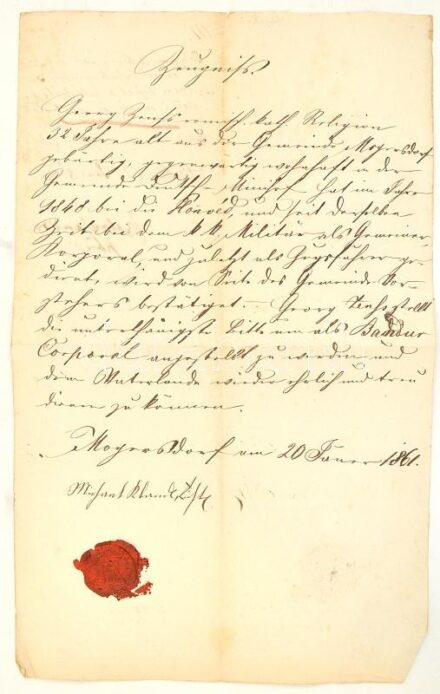 Zeugniß.
Georg Zenhs roemisch. kath. Religion
32 Jahre alt aus der Gemeinde Mogersdorf
gebürtig, gegenwärtig wohnhaft in der
Gemeinde Deutsch-Minihof hat im Jahre
1848 bei die Honvéd, und seit derselben
Zeit bei dem k k Militär als Gemeiner
Korporal, und zuletzt als Zugsführer ge-
dient, wird von Seite des Gemeinde Vor-
stehers bestätiget. Georg stellt
die unterthänigste Bitte um als Bandur
Corporal angestellt zu werden und
dem Vaterlande wieder ehrlich und treu
dienen zu können.
Mogersdorf am 20 Jäner 1861.
Michael